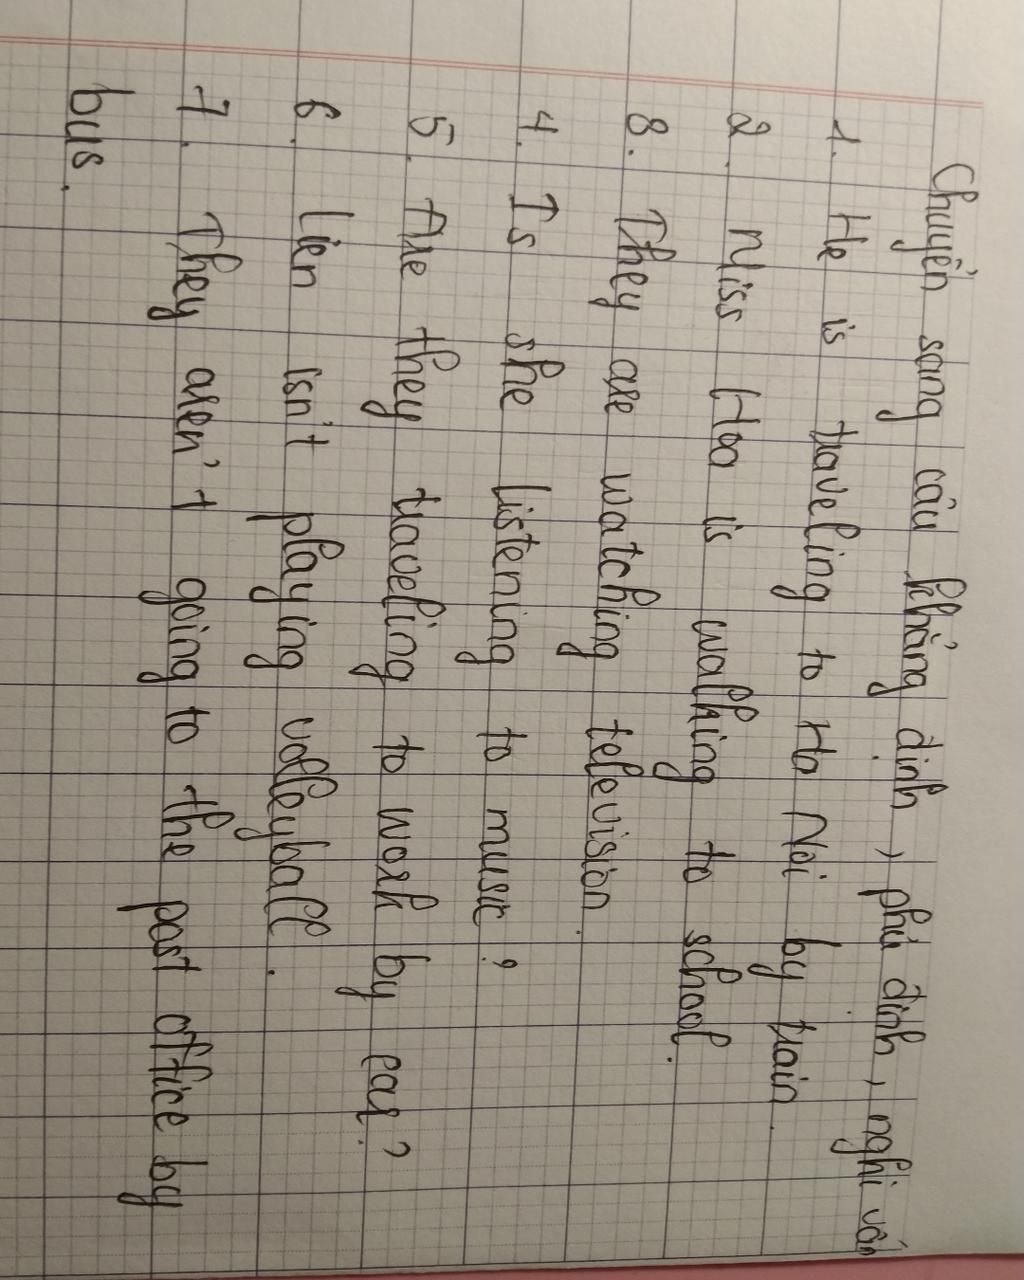 Chuyển sang câu khẳng định, phủ định, nghi vấn
1. He is traveling to Ha Noi by train.
2. Miss Hoa is walking to school.
3. They are watching television.
4. Is she listening to music?
5. Are they traveling to work by car?
6. Lien isn't playing volleyball.
7. They aren't going to the post office by
bus.